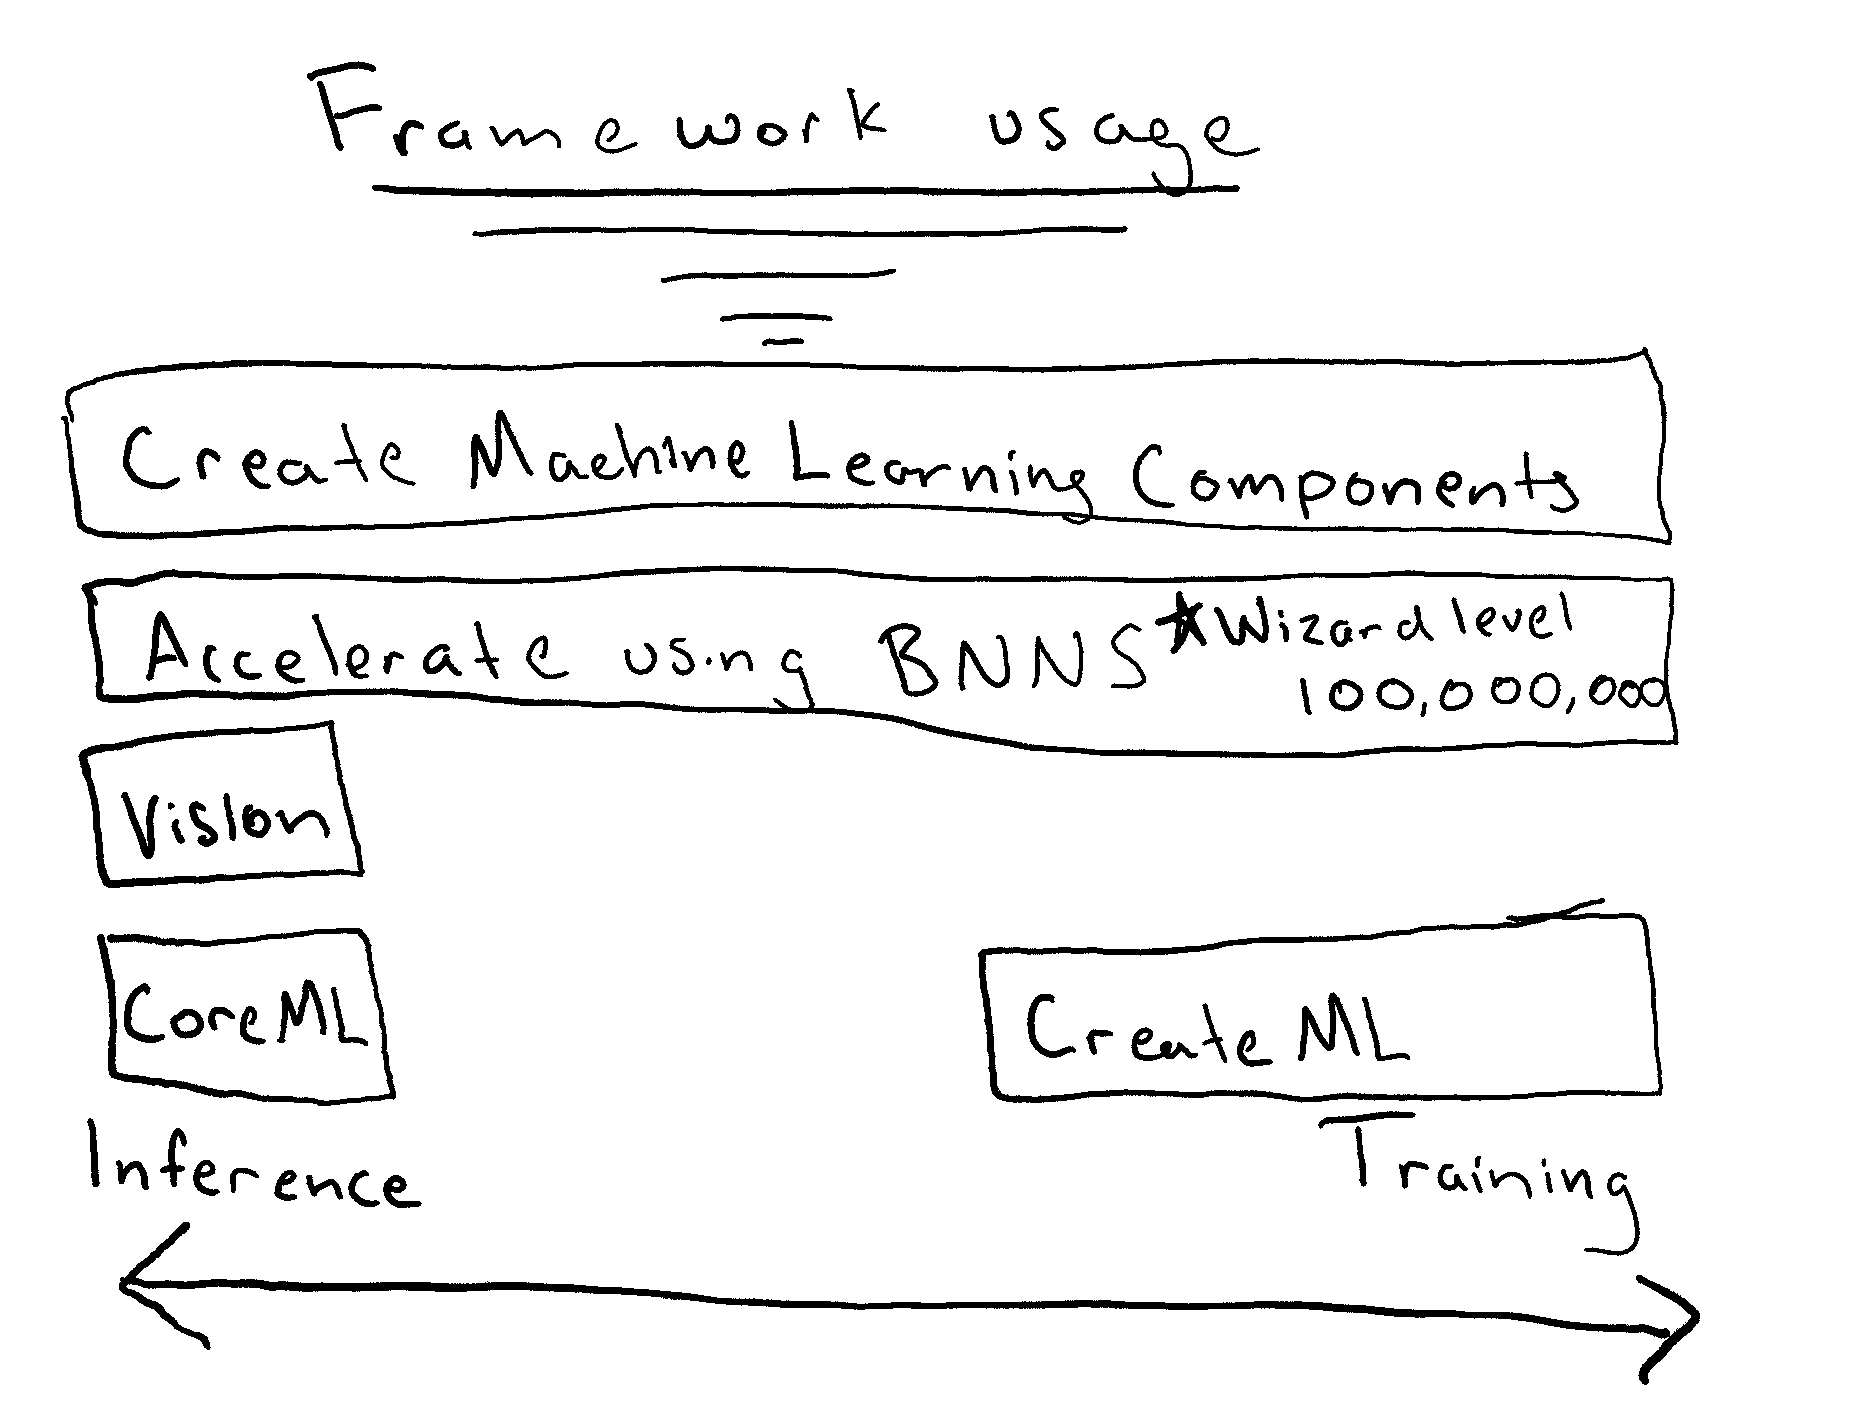 Framework usage
Create Machine Learning Components
Accelerate using BNNS ★Wizard level
100,000,000
Vision
CoreML
Create ML
Inference
Training